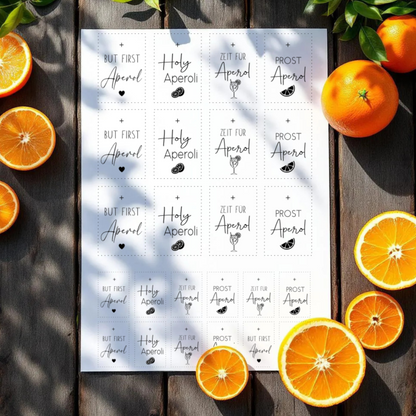 BUT FIRST Holy ZEIT FÜR PROST
Aperol Aperoli Aperol Aperol
BUT FIRST Holy ZEIT FÜR PROST
Aperol Aperoli Aperol Aperol
BUT FIRST Holy ZEIT FÜR PROST
Aperol Aperoli Aperol Aperol
BUT FIRST Holy ZEIT FÜR PROST ZEIT FÜR PROST
Aperol Aperoli Aperol Aperol Aperol Aperol
BUT FIRST Holy ZEIT FÜR PROST BUT FIRST
Aperol Aperoli Aperol Aperol Aperol